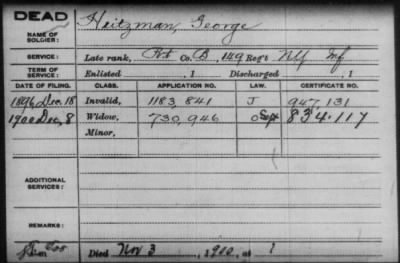 DEAD
Heitzman, George
NAME OF SOLDIER:
SERVICE: Late rank, Pvt Co. B, 149 Reg't NY Inf
TERM OF SERVICE: Enlisted , 1 Discharged , 1
DATE OF FILING. CLASS. APPLICATION NO. LAW. CERTIFICATE NO.
1896, Dec. 18 Invalid, 1183,841 J 947,131
1900 Dec, 8 Widow, 730,946 834.117
Minor,
ADDITIONAL SERVICES:
REMARKS:
Died Nov 3, 1900, at